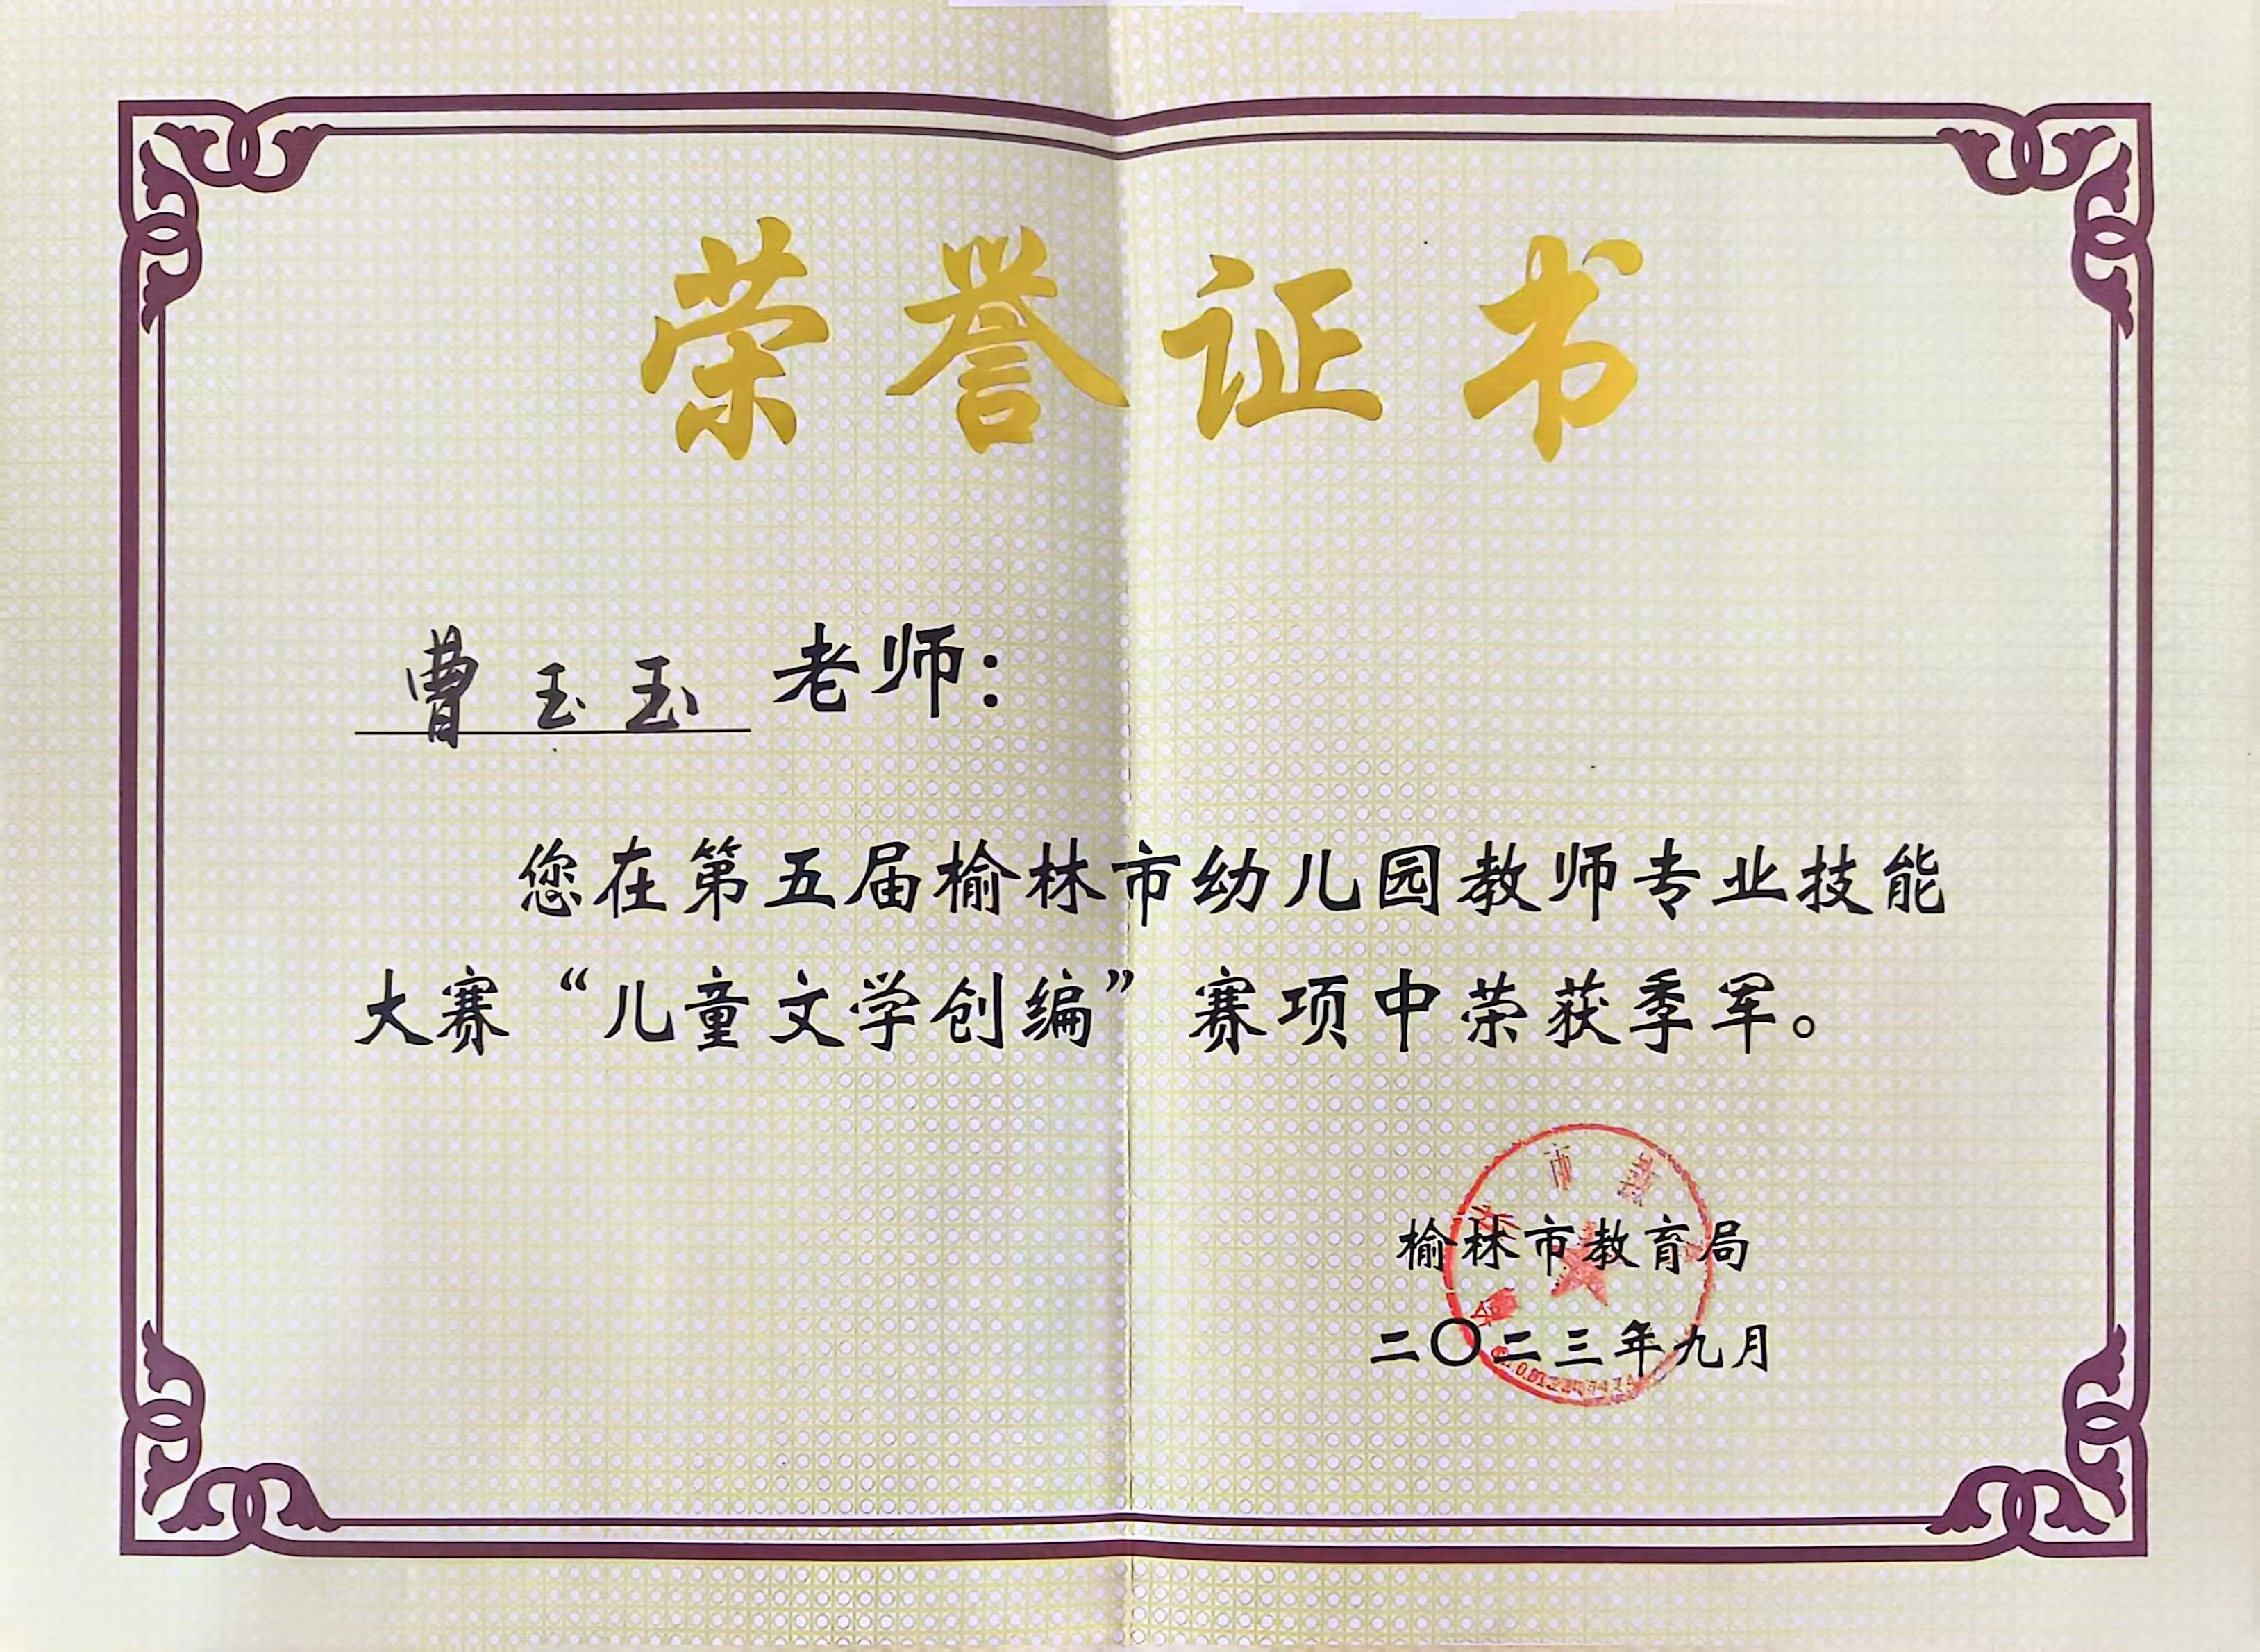 荣誉证书
曹玉玉 老师：
您在第五届榆林市幼儿园教师专业技能
大赛“儿童文学创编”赛项中荣获季军。
榆林市教育局
二〇二三年九月